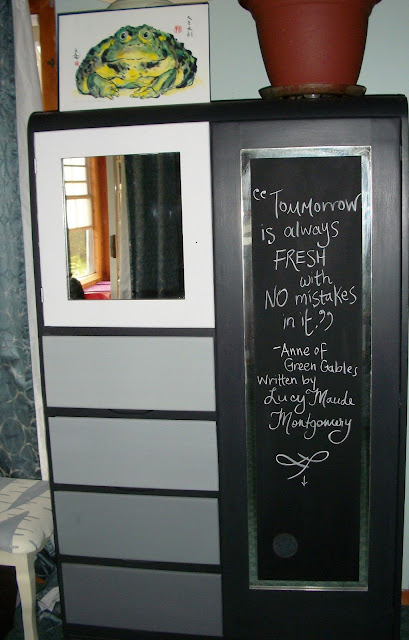 “Toumorrow
is always
FRESH
with
NO mistakes
in it.”
-Anne of
Green Gables
Written by
Lucy Maude
Montgomery